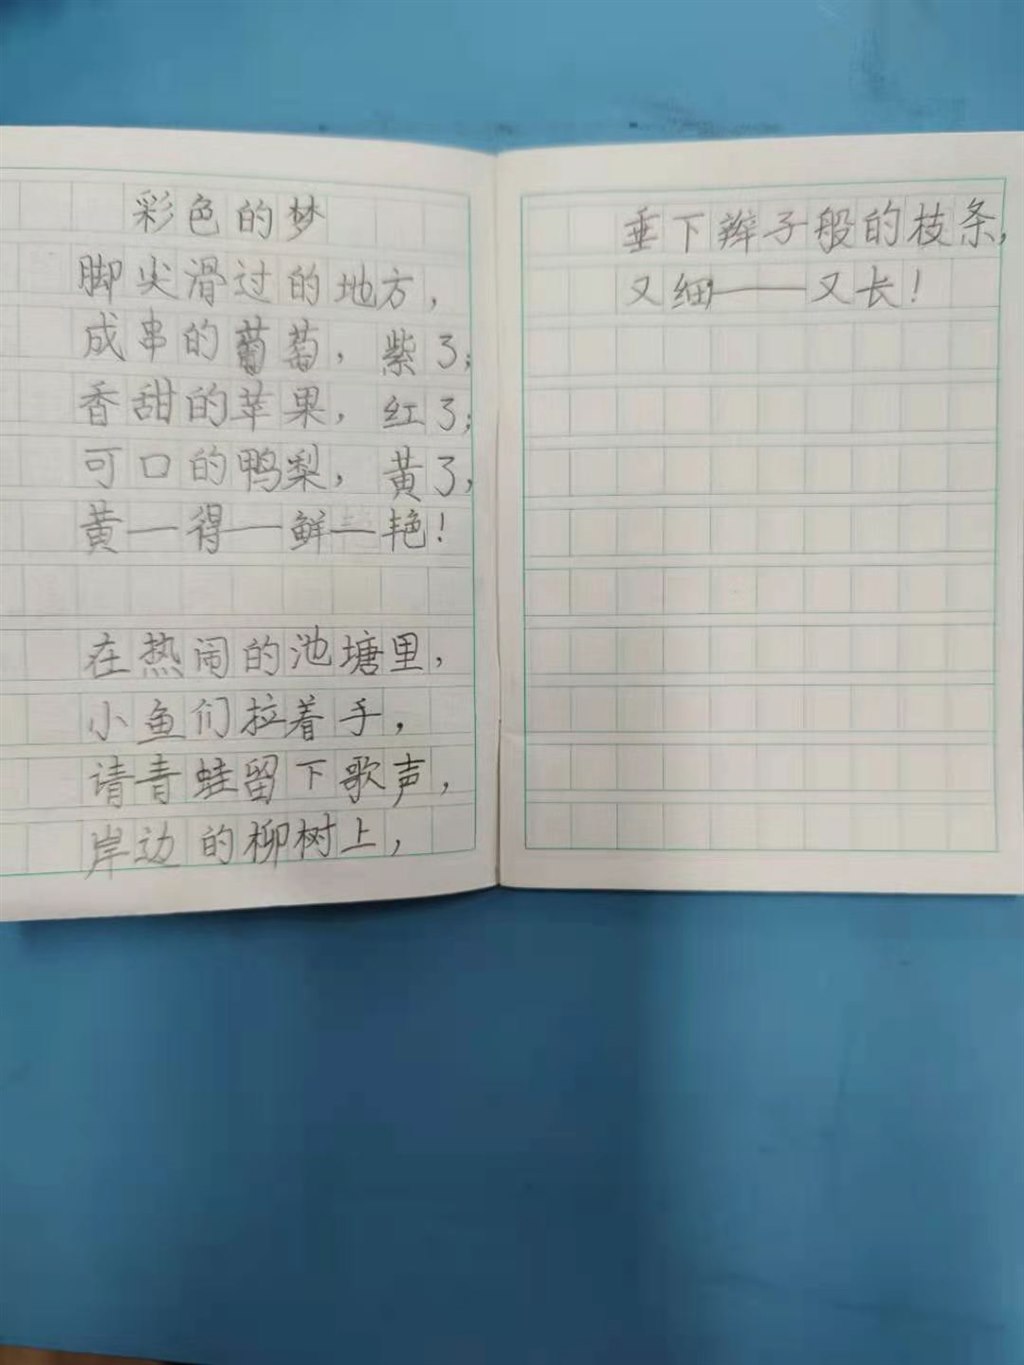 彩色的梦
脚尖滑过的地方，
成串的葡萄，紫了；
香甜的苹果，红了；
可口的鸭梨，黄了，
黄—得—鲜—艳！
在热闹的池塘里，
小鱼们拉着手，
请青蛙留下歌声，
岸边的柳树上，
垂下辫子般的枝条，
又细——又长！